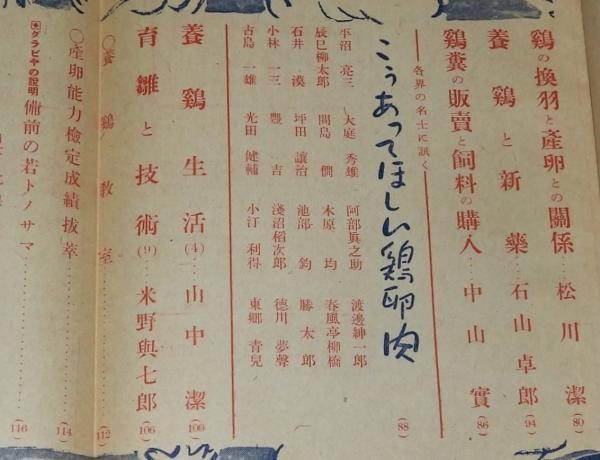 鷄の換羽と產卵との關係……松川潔(80)
養鷄と新藥……石山卓郎(94)
鷄糞の販賣と飼料の購入……中山實(86)
こうあってほしい鷄卵肉(88)
各界の名士に訊く
平沼亮三 大庭秀雄 阿部眞之助 渡邊紳一郎
辰巳柳太郎 間島僴 木原均 春風亭柳橋
石井漠 坪田讓治 池部鈞 勝太郎
小林一三 豐吉 淺沼稻次郎 德川夢聲
古島一雄 光田健輔 小汀利得 東鄕靑兒
養鷄生活(4)……山中潔(100)
育雛と技術(9)……米野與七郎(106)
○養鷄敎室(112)
○產卵能力檢定成績拔萃(114)
グラビヤの說明 備前の若トノサマ(116)